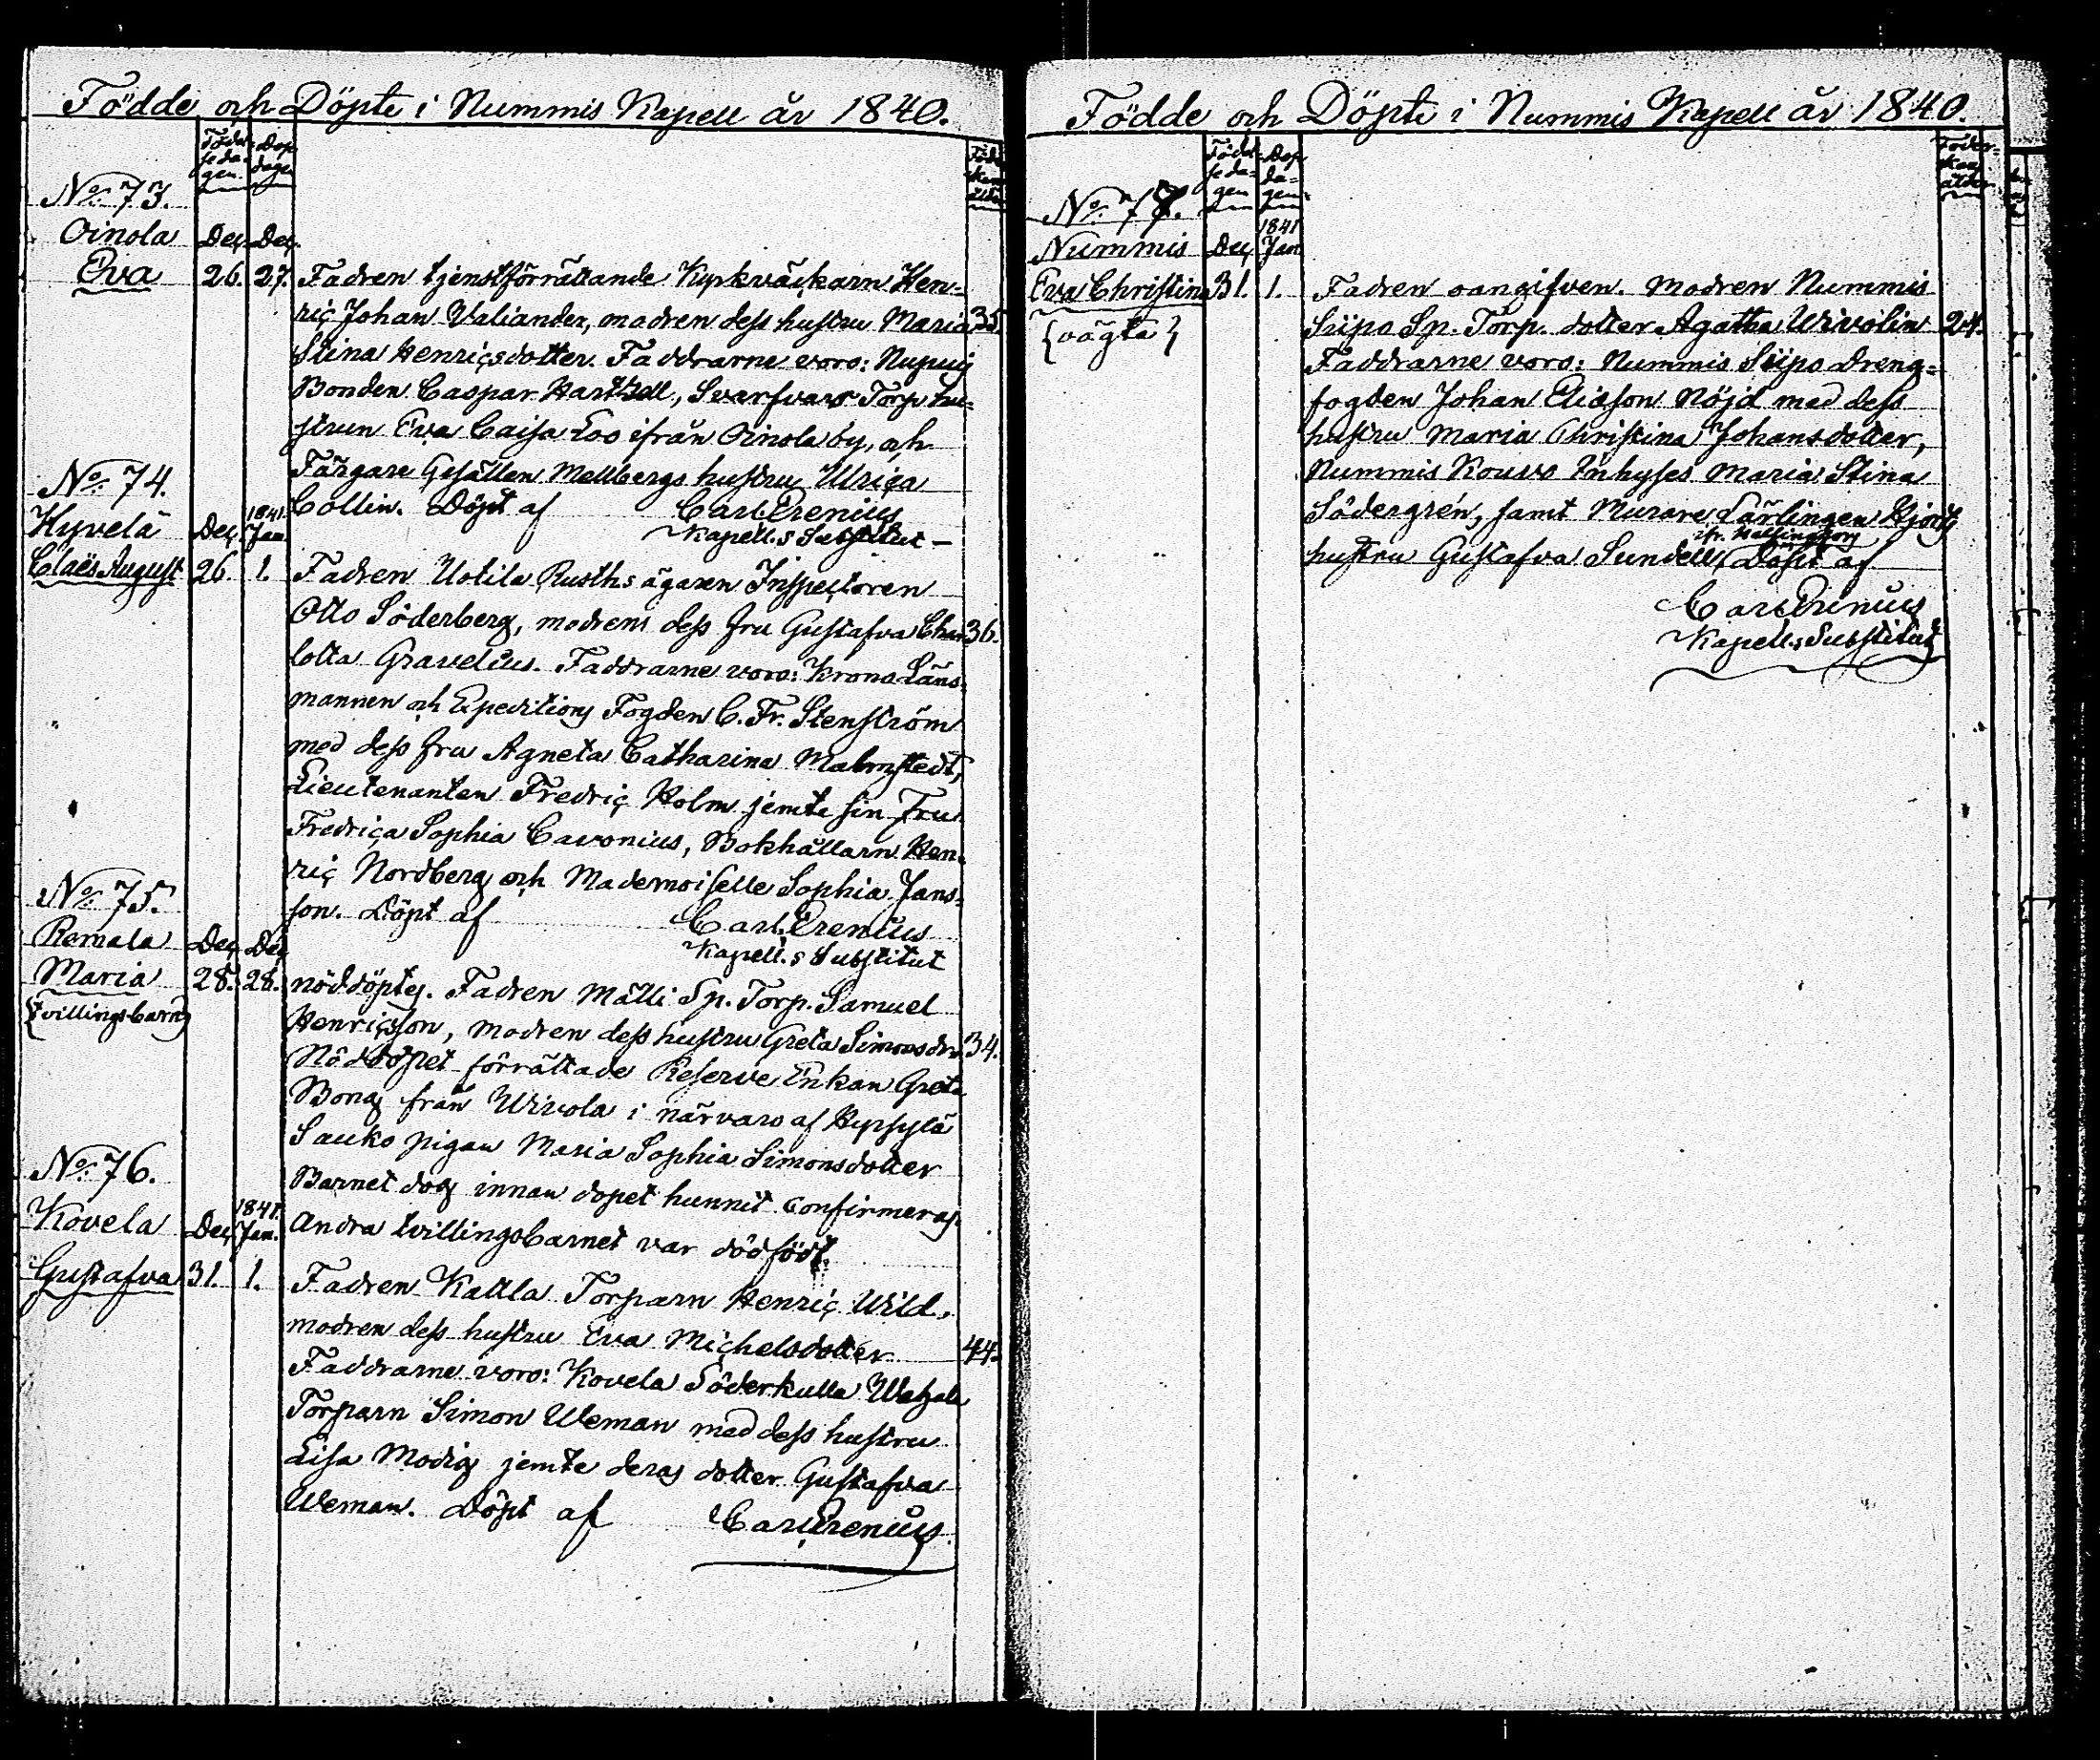 Födde och Döpte i Nummis Kapell år 1840.
Födel-
se da-
gen.
Dop
dagen
Föder-
skans
ålder
No. 73.
Oinola Dec. Dec.
Eva 26. 27. Fadren tjenstförrättande Kyrkväckarn Hen-
ric Johan Valiander, modren dess hustru Maria 35.
Stina Henricsdotter. Faddrarne voro: Nupuis
Bonden Caspar Harthell, Svarfvars Torp. hu-
strun Eva Caisa Loo ifrån Oinola by, och
Färgare Gesällen Mellbergs hustru Ulrica
Collin. Döpt af Carl Prenius
Kapell.s Substitut
No. 74.
1841.
Hyvelä Dec. Jan.
Claës August 26. 1. Fadren Uotila Rusth. ägaren Inspectoren
Otto Söderberg, modren dess fru Gustafva Char 36.
lotta Gravelius. Faddrarne voro: Krono Läns-
mannen och Expeditions Fogden C. Fr. Stenström
med dess fru Agneta Catharina Malmstedt,
Lieutenanten Fredric Holm jemte sin Fru
Fredrica Sophia Cavonius, Bokhållarn Hen-
ric Nordberg och Mademoiselle Sophia Jans-
son. Döpt af Carl Prenius
Kapell.s Substitut
No. 75.
Remala Dec. Dec.
Maria 28. 28. nöddöptes. Fadren Mälli Sp. Torp. Samuel
{tvillingsbarn}
Henricsson, modren dess hustru Greta Simonsdr. 34.
Nöddopet förrättade Reserve Enkan Greta
Bong från Wivola i närvaro af Hypsylä
Sauko pigan Maria Sophia Simonsdotter
Barnet dog innan dopet hunnit confirmeras.
Andra tvillingsbarnet var dödfödt.
No. 76.
1841.
Kovela Dec. Jan.
Gustafva 31. 1. Fadren Kattla Torparn Henric Wild,
modren dess hustru Eva Michelsdotter 44.
Faddrarne voro: Kovela Söderkulla
Torparn Simon Weman med dess hustru
Lisa Modig jemte deras dotter Gustafva
Weman. Döpt af Carl Prenius.
Födde och Döpte i Nummis Kapell år 1840.
Födel-
se da-
gen
Dop
da-
gen
Föder-
skan
ålder
No. 77.
1841
Nummis Dec. Jan
Eva Christina 31. 1. Fadren oangifven. Modren Nummis
{oägta}
Siipo Sp. Torp. dotter Agatha Wivolin 24.
Faddrarne voro: Nummis Siipo Dreng-
fogden Johan Eliasson Nöjd med dess
hustru Maria Christina Johansdotter,
Nummis Kouvo Inhyses Maria Stina
Södergrén, samt Murare Lärlingen Hjorts
ifr. Helsingfors
hustru Gustafva Sundell. Döpt af
Carl Prenius
Kapell.s Substitut